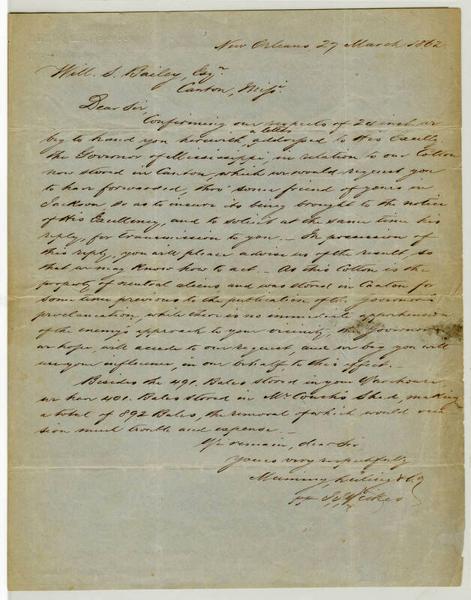 New Orleans 27 March 1862
Will. S. Bailey, Esqr.
Canton, Missi.
Dear Sir,
Confirming our respects of 24 inst. we
beg to hand you herewith a letter addressed to His Excelly
the Governor of Mississippi, in relation to our Cotton
now stored in Canton, which we would request you
to have forwarded, thro' some friend of yours in
Jackson, so as to insure its being brought to the notice
of His Excellency, and to solicit at the same time his
reply, for transmission to you. — In possession of
this reply, you will please advise us of the result, so
that we may know how to act. — As this Cotton is the
property of neutral aliens and was stored in Canton for
some time previous to the publication of the Governor's
proclamation, while there is no immediate apprehension
of the enemy's approach to your vicinity the Governor
we hope, will accede to our request, and we beg you will
use your influence, in our behalf, to this effect. —
Besides the 491 Bales stored in your Warehouse,
we have 401 Bales stored in Shed, making
a total of 892 Bales, the removal of which would occa
sion much trouble and expense. —
We remain, dear Sir
Yours very respectfully
& Co